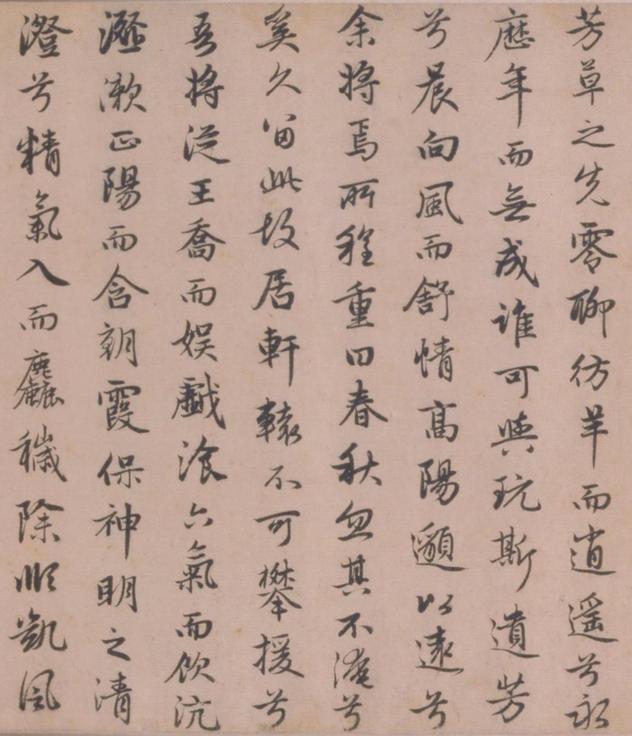 芳草之先零聊彷羊而逍遥兮永
歷年而無成誰可與玩斯遺芳
兮晨向風而舒情高陽邈以遠兮
余將焉所程重曰春秋忽其不淹兮
奚久留此故居軒轅不可攀援兮
吾將從王喬而娛戲湌六氣而飲沆
瀣漱正陽而含朝霞保神明之清
澄兮精氣入而麤穢除順凱風